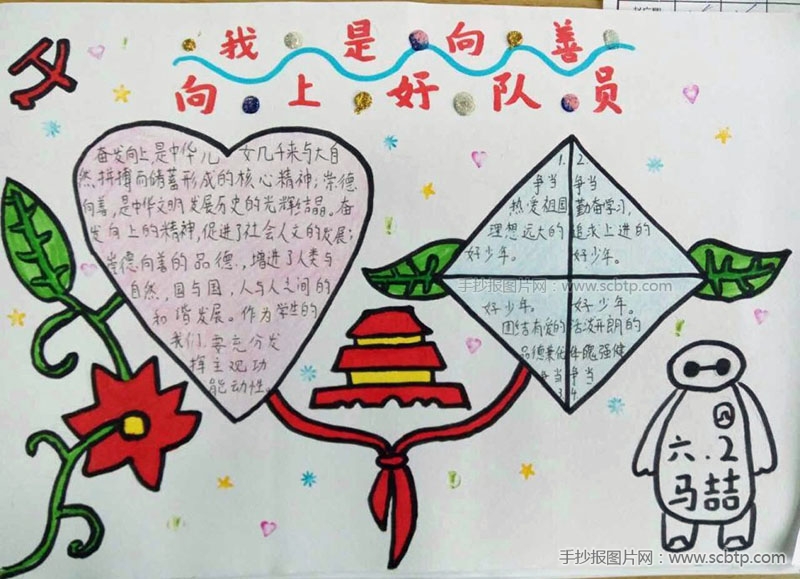 我是向善
向上好队员
奋发向上,是中华儿女几千来与大自
然拼搏而储蓄形成的核心精神;崇德
向善,是中华文明发展历史的光辉结晶。奋
发向上的精神,促进了社会人文的发展;
崇德向善的品德,增进了人类与
自然,国与国,人与人之间的
和谐发展。作为学生的
我们,要充分发
挥主观功
能动性。
1.
争当
热爱祖国
理想远大的
好少年。
2
争当
勤奋学习,
追求上进的
好少年。
好少年。
团结有爱的
品德兼优
争当
3
好少年。
活泼开朗的
体魄强健
争当
4
六.2
马喆
手抄报图片网:www.scbtp.com
手抄报图片网:www.scbtp.com